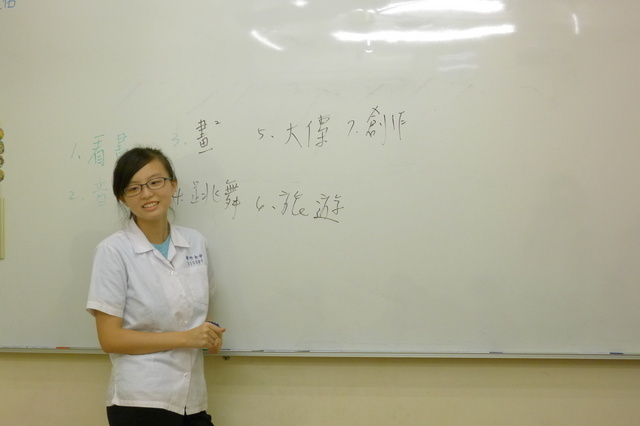 1. 看書 3. 畫² 5. 大傑 7. 創作
2. 音 4. 跳舞 6. 旅遊